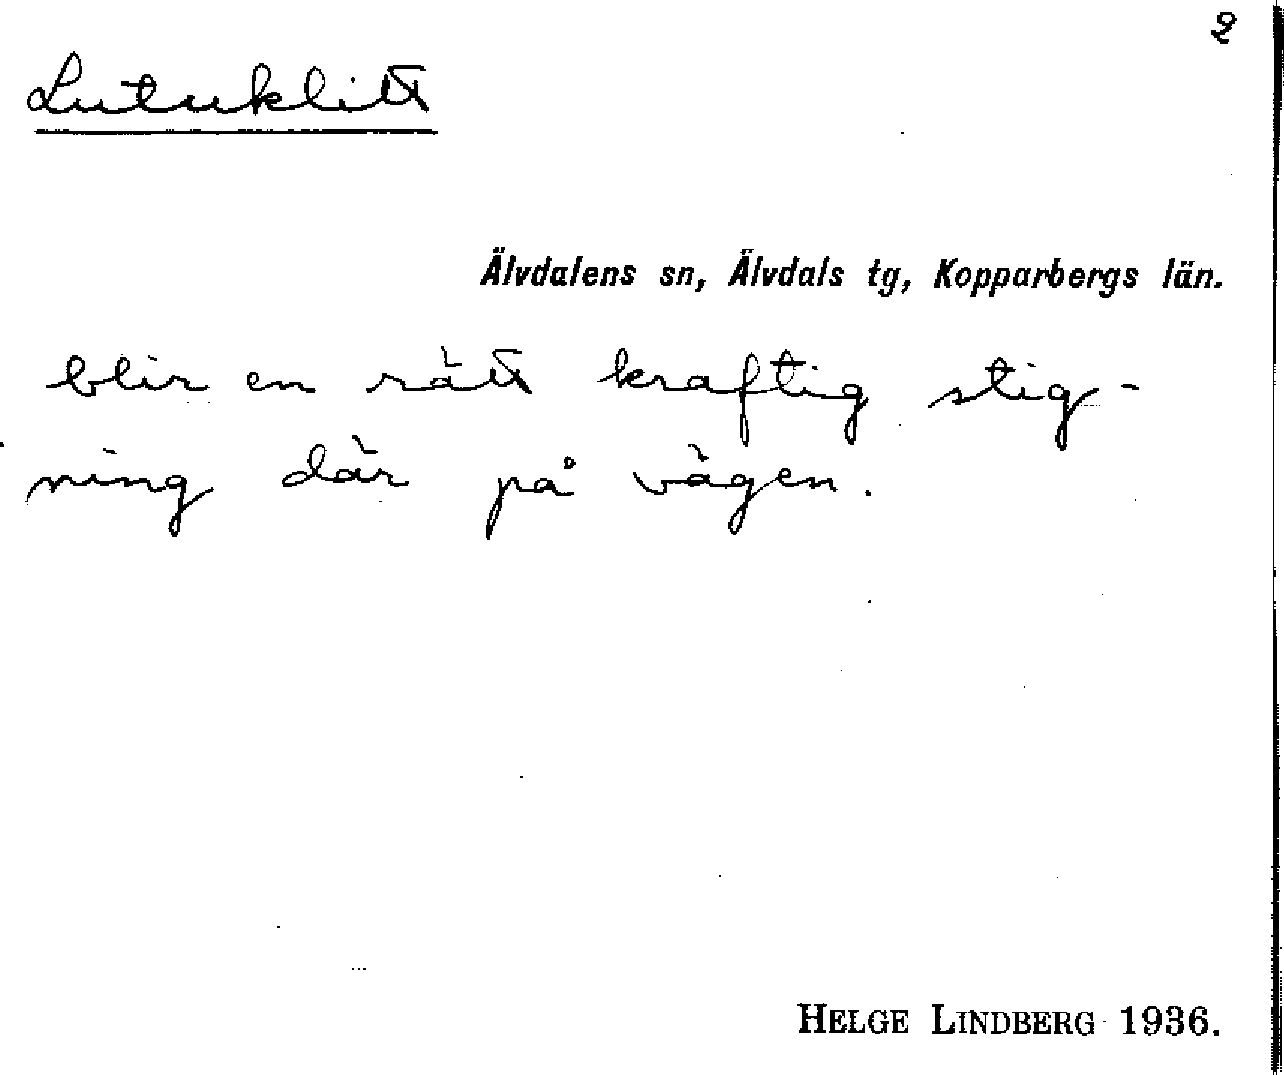 2
Lutuklitt
Älvdalens sn, Älvdals tg, Kopparbergs län.
blir en rätt kraftig stig-
ning där på vägen.
HELGE LINDBERG 1936.